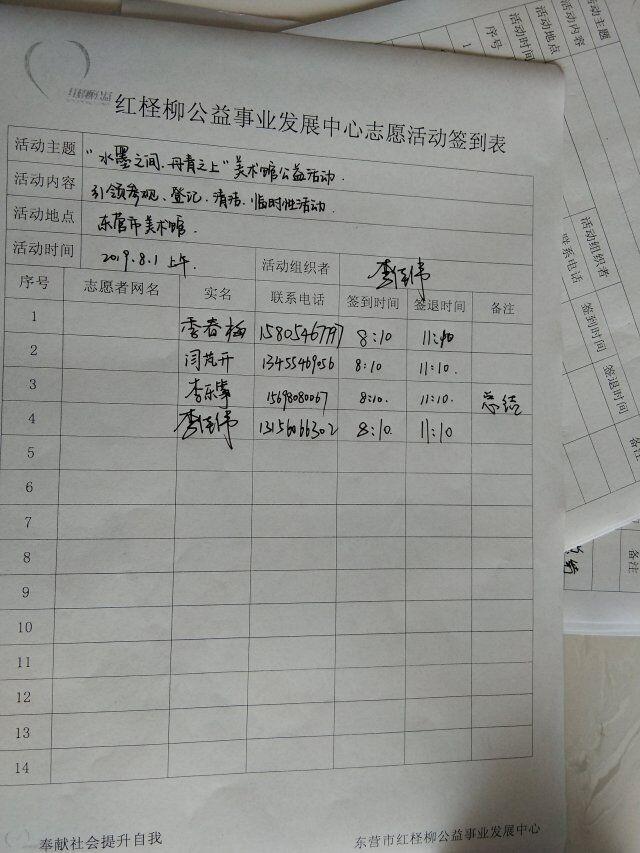 红柽柳公益
红柽柳公益事业发展中心志愿活动签到表
活动主题 "水墨之间.丹青之上"美术馆公益活动.
活动内容 引领参观、登记.清洁.临时性活动
活动地点 东营市美术馆.
活动时间 2019.8.1 上午. 活动组织者
序号 志愿者网名 实名 联系电话 签到时间 签退时间 备注
1 李春梅 15805467797 8:10 11:10
2 闫芃开 13455469056 8:10 11:10.
3 李乐 15698080067 8:10. 11:10. 总结
4 13156066302 8:10. 11:10
5
6
7
8
9
10
11
12
13
14
奉献社会提升自我 东营市红柽柳公益事业发展中心
活动主题
活动内容
活动地点
活动时间
序号
1
活动组织者
联系电话
签到时间
签退时间
备注
备注